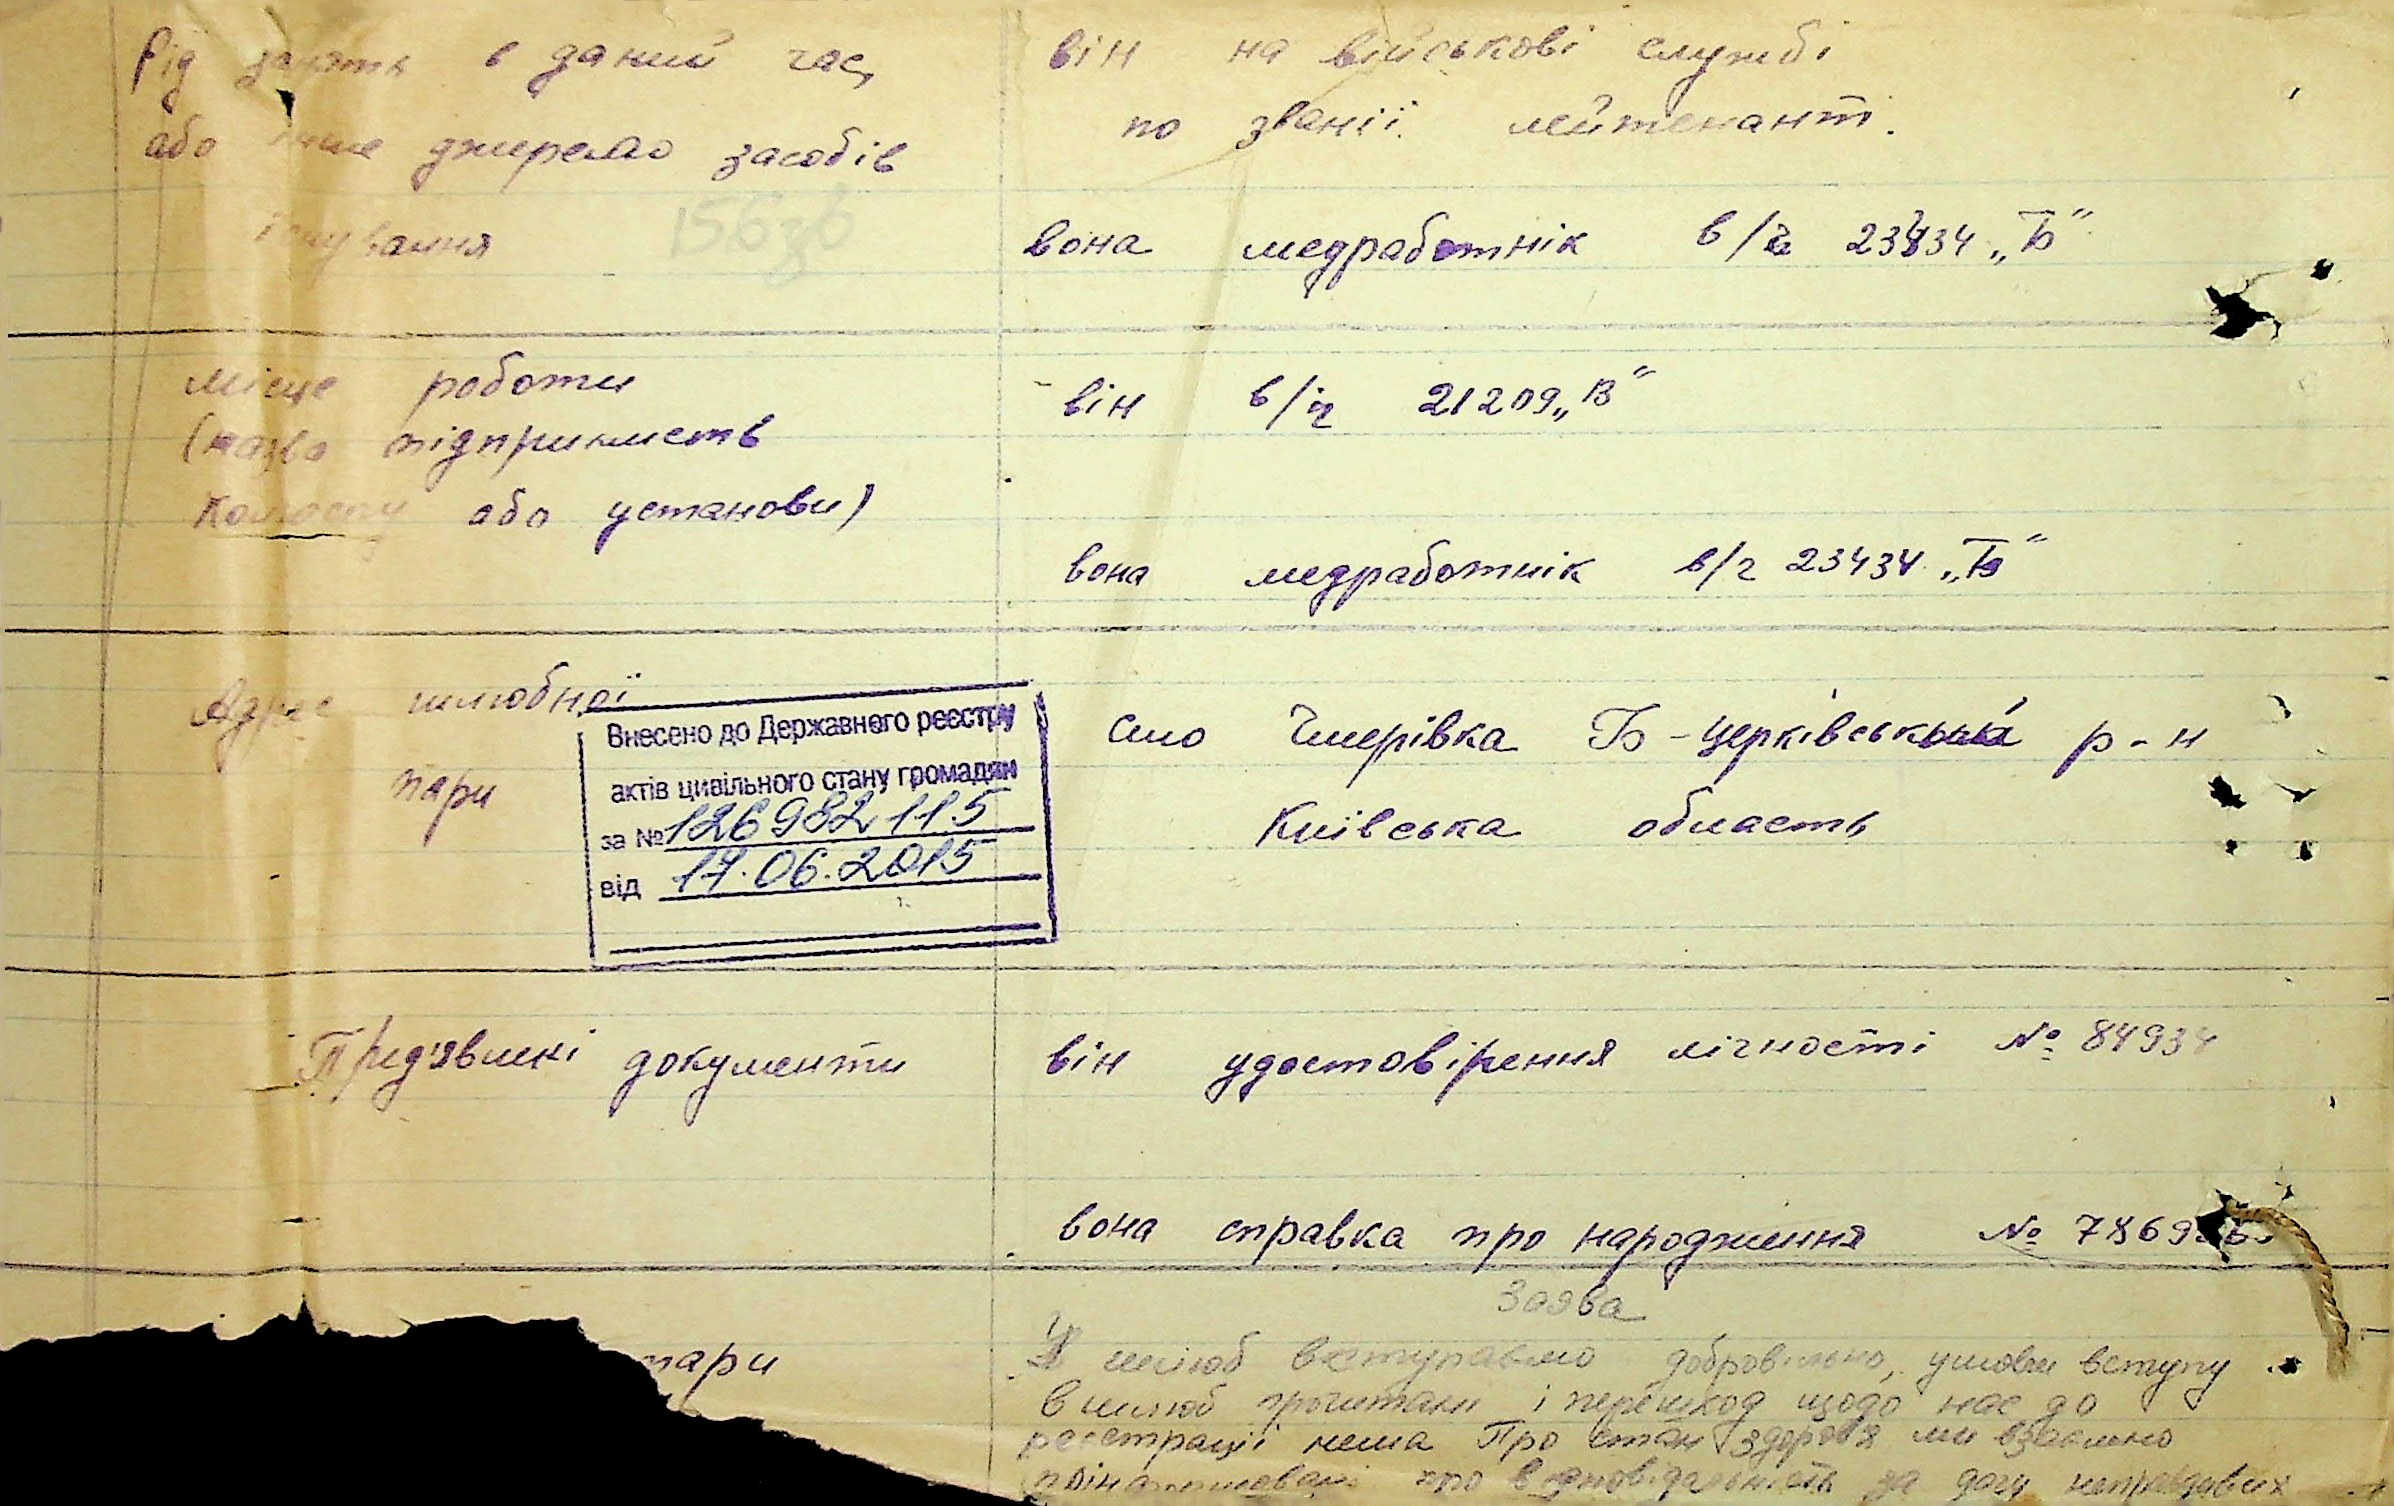 Рід занять в даний час,
або інше джерело засобів
існування
він на військові службі
по званії лейтенант.
вона медработнік в/ч 23434 „Б"
місце роботи
(назва підприємств
колгоспу або установи)
він в/ч 21209 „В"
вона медработнік в/ч 23434 „Б"
Адрес шлюбної
пари
Внесено до Державного реєстру
актів цивільного стану громадян
за № 126982115
від 17.06.2015
село Чмерівка Б-церківський р-н
Київська область
Пред'явлені документи
він удостовірення лічності № 84934
вона справка про народження
пари
Заява
У шлюб вступаємо добровільно, умови вступу
в шлюб прочитали і перешкод щодо нас до
реєстрації нема Про стан здоров'я ми взаємно
про відповідальність за дачу неправдивих